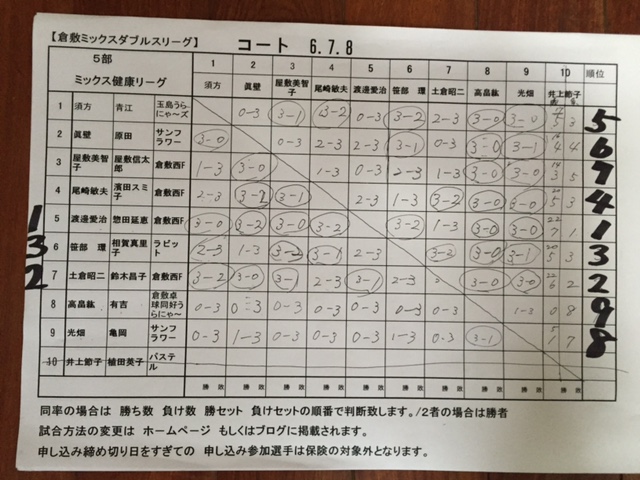 【倉敷ミックスダブルスリーグ】 コート 6.7.8
5部 1 2 3 4 5 6 7 8 9 10 順位
ミックス健康リーグ 須方 眞壁 屋敷美智子 尾崎敏夫 渡邊愛治 笹部 環 土倉昭二 高畠紘 光畑 井上節子
1 須方 青江 玉島うらにゃーズ 0-3 3-1 3-2 0-3 3-2 2-3 3-0 3-0 5 3 5
2 眞壁 原田 サンフラワー 3-0 0-3 2-3 2-3 3-1 0-3 3-0 3-1 4 4 6
3 屋敷美智子 屋敷信太郎 倉敷西F 1-3 3-0 1-3 0-3 2-3 1-3 3-0 3-0 3 5 7
4 尾崎敏夫 濱田スミ子 倉敷西F 2-3 3-2 3-1 2-3 1-3 3-2 3-0 3-0 5 3 4
1 5 渡邊愛治 惣田延恵 倉敷西F 3-0 3-2 3-0 3-2 3-2 1-3 3-0 3-0 22 7 1 1
3 6 笹部 環 相賀真里子 ラビット 2-3 1-3 3-2 3-1 2-3 3-2 3-0 3-1 20 5 3 3
2 7 土倉昭二 鈴木昌子 倉敷西F 3-2 3-0 3-1 2-3 3-1 2-3 3-0 3-0 22 6 2 2
8 高畠紘 有吉 倉敷卓球同好うらにゃ～ 0-3 0-3 0-3 0-3 0-3 0-3 0-3 1-3 0 8 9
9 光畑 亀岡 サンフラワー 0-3 1-3 0-3 0-3 0-3 1-3 0-3 3-1 1 7 8
10 井上節子 植田英子 パステル
勝 敗 勝 敗 勝 敗 勝 敗 勝 敗 勝 敗 勝 敗 勝 敗 勝 敗 勝 敗
同率の場合は 勝ち数 負け数 勝セット 負けセットの順番で判断致します。/2者の場合は勝者
試合方法の変更は ホームページ もしくはブログに掲載されます。
申し込み締め切り日をすぎての 申し込み参加選手は保険の対象外となります。